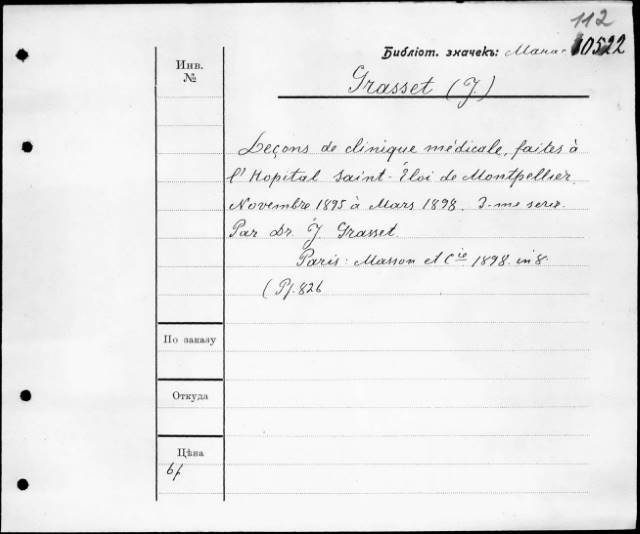 112
Библіот. значекъ: 10522
Инв.
№
Grasset (J.)
Leçons de clinique médicale, faites à
l'Hopital Saint-Éloi de Montpellier.
Novembre 1895 à Mars 1898. 3-me serie.
Par Dr. J. Grasset.
Paris: Masson et Cie 1898. in 8.
( Pf. 826
По заказу
Откуда
Цѣна
6 f.